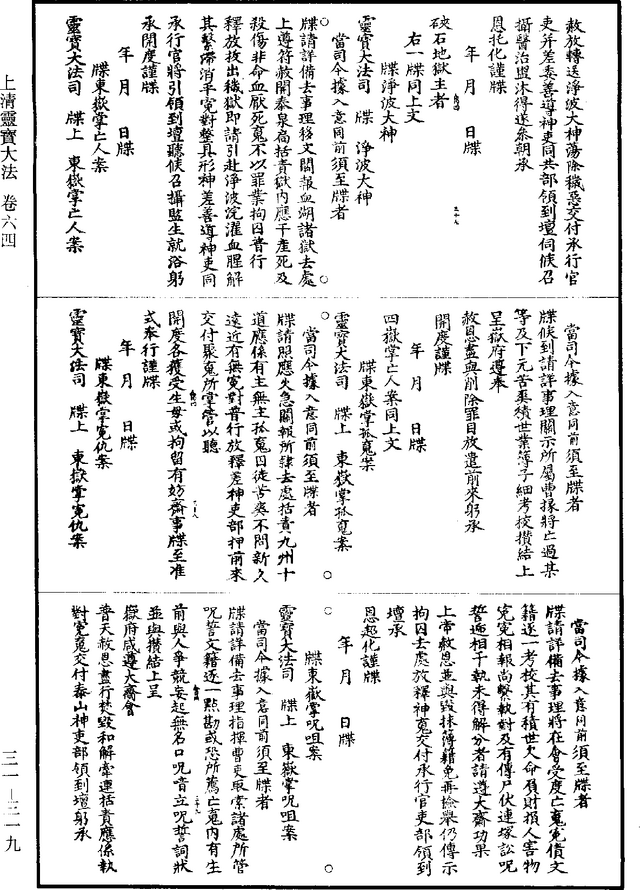 上清靈寶大法　卷六四
三一—三一九
赦放轉送淨波大神蕩除穢惡交付承行官
吏并差委善導神吏同共部領到壇伺候召
攝醫治盥沐得遂參朝承
恩托化謹牒
年　月　日牒
破石地獄主者
右一牒同上文
牒淨波大神
靈寶大法司　牒　淨波大神
當司今據入意同前須至牒者
牒請詳備去事理移文關報血湖諸獄去處
上遵符赦開泰泉扃括責獄內應干產死及
殺傷非命血厭死䰟不以罪業拘囚普行
釋放拔出穢獄即請引赴淨波浣濯血腥解
其繫滯消平寃對整具形神差善導神吏同
承行官將引領到壇聽候召攝監生就浴躬
承開度謹牒
年　月　日牒
牒東嶽掌亡人案
靈寶大法司　牒上　東嶽掌亡人案
當司今據入意同前須至牒者
牒候到請詳事理關示所屬曹掾將亡過某
等及下元苦奭積世業簿子細考校攢結上
呈嶽府遵奉
赦恩盡與削除罪目放遣前來躬承
開度謹牒
年　月　日牒
四嶽掌亡人案同上文
牒東嶽掌孤䰟案
靈寶大法司　牒上　東嶽掌孤䰟案
當司今據入意同前須至牒者
牒請照應火急關報所隸去處括責九州十
道應係有主無主孤䰟囚徒苦爽不問新久
遠近有無寃對普行放釋差神吏部押前來
交付聚䰟所掌管以聽
開度各獲受生毋或拘留有妨齋事牒至准
式奉行謹牒
年　月　日牒
牒東嶽掌寃仇案
靈寶大法司　牒上　東嶽掌寃仇案
當司今據入意同前須至牒者
牒請詳備去事理將在會受度亡䰟寃債文
籍逐一考校其有積世欠命負財損人害物
寃寃相報尚繫執對及有傳尸伏連塚訟呪
誓迤相干執未得解分者請遵大齋功果
上帝赦恩並與毀抹簿籍免再撿舉仍傳示
拘囚去處放釋神䰟交付承行官吏部領到
壇承
恩超化謹牒
年　月　日牒
牒東嶽掌呪咀案
靈寶大法司　牒上　東嶽掌呪咀案
當司今據入意同前須至牒者
牒請詳備去事理指揮曹吏取索諸處所管
呪誓文籍逐一㸃勘或恐所薦亡䰟內有生
前與人爭競妄起無名口呪音立呪誓詞狀
並與攢結上呈
嶽府咸遵大齋會
普天赦恩盡行焚毀和解牽連括責應係執
對寃䰟交付泰山神吏部領到壇躬承